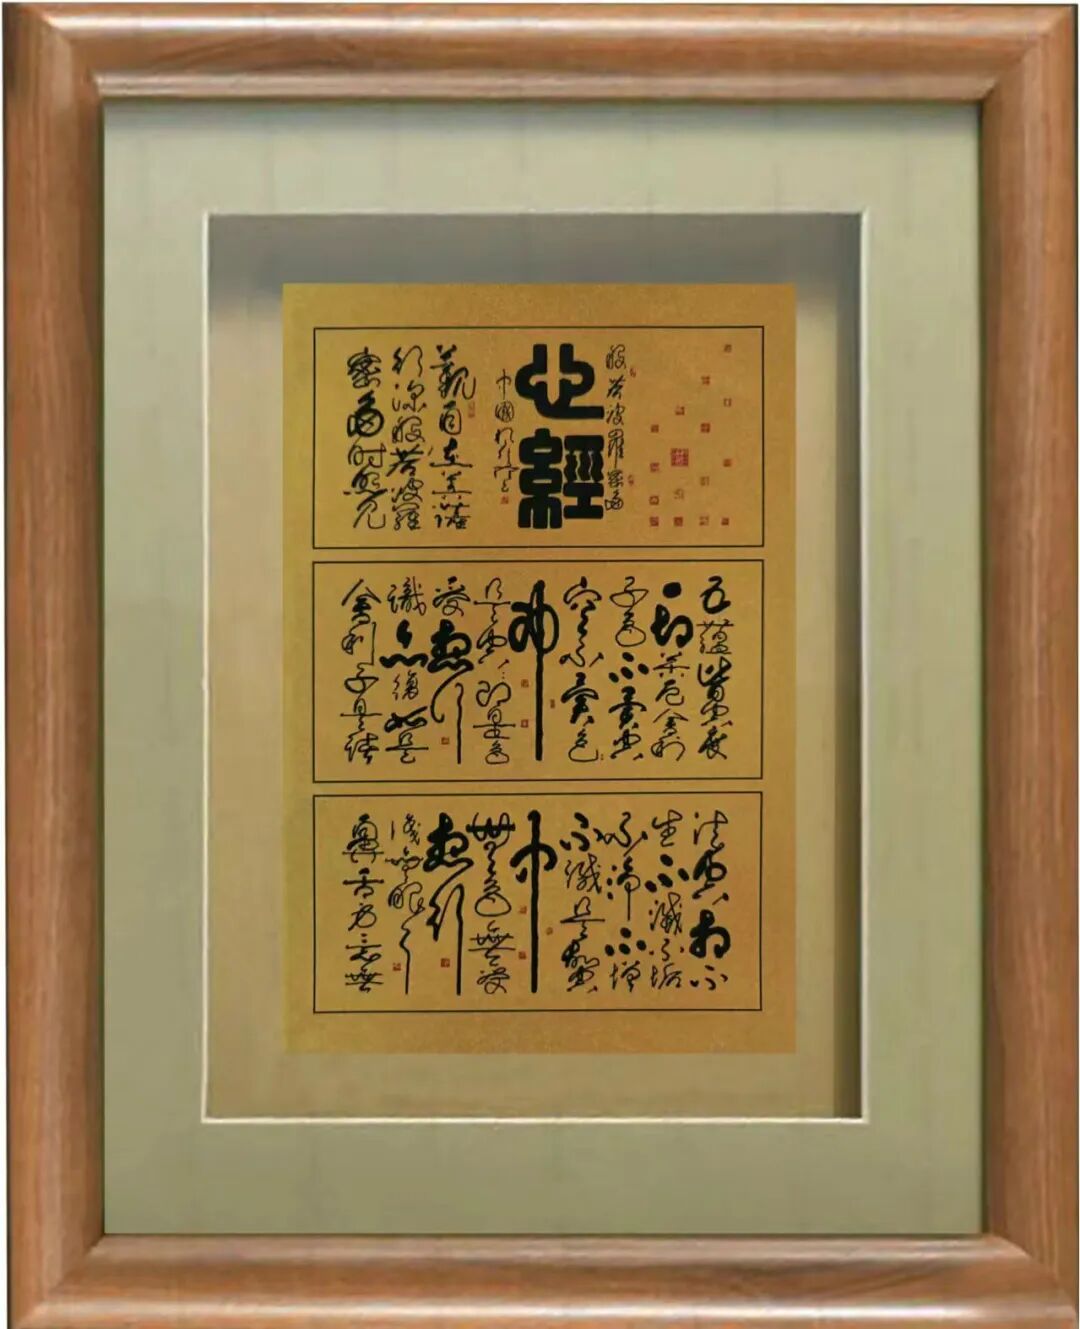 般若波羅蜜多
心經
中國
觀自在菩薩
行深般若波羅
蜜多時照見
五蘊皆空度
一切苦厄舍利
子色不異空
空不異色
即
是空即是色
受想行
識亦復如是
舍利子是諸
法空相不
生不滅不垢
不淨不增
不減是故空
中
無色無受
想行
識無眼耳
鼻舌身意無